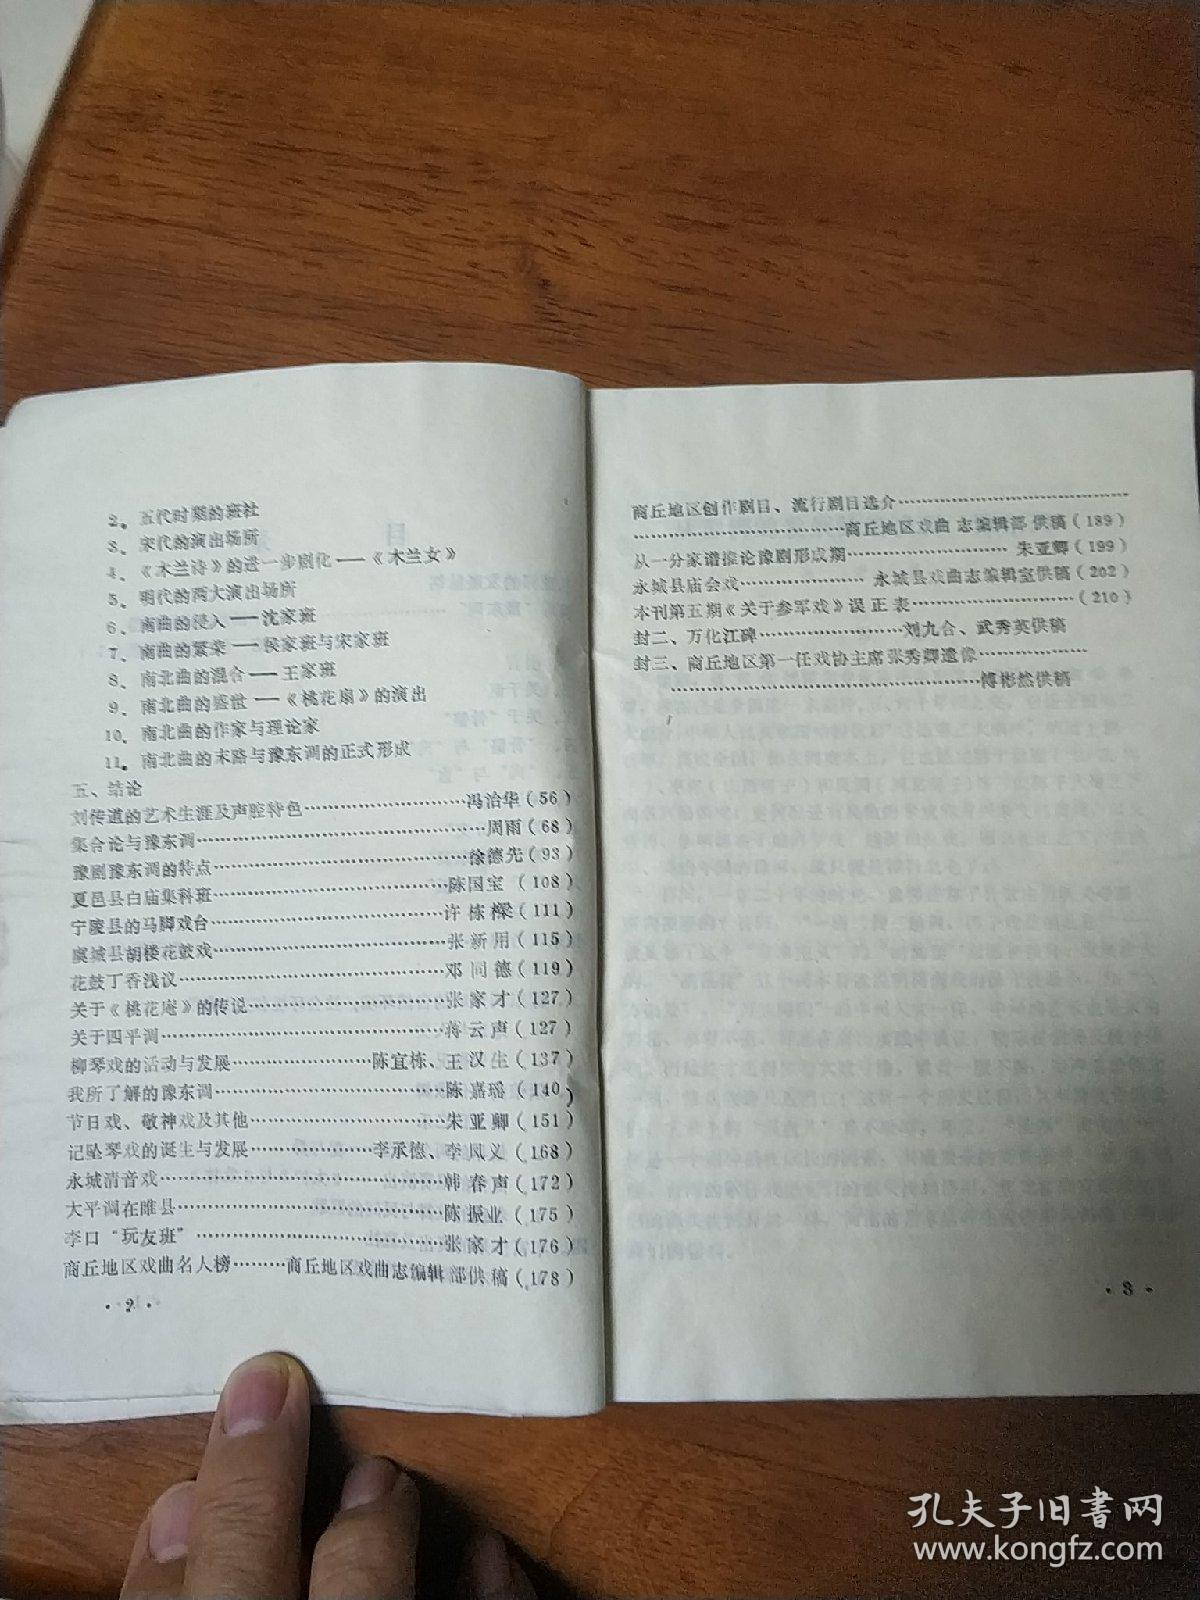 2、五代时梨的班社
3、宋代的演出场所
4、《木兰诗》的进一步剧化——《木兰女》
5、明代的两大演出场所
6、南曲的侵入——沈家班
7、南曲的繁荣——侯家班与宋家班
8、南北曲的混合——王家班
9、南北曲的盛世——《桃花扇》的演出
10、南北曲的作家与理论家
11、南北曲的末路与豫东调的正式形成
五、结论
刘传道的艺术生涯及声腔特色……冯治华(56)
集合论与豫东调……周雨(68)
豫剧豫东调的特点……徐德先(93)
夏邑县白庙集科班……陈国宝(108)
宁陵县的马脚戏台……许栋樑(111)
虞城县胡楼花鼓戏……张新用(115)
花鼓丁香浅议……邓同德(119)
关于《桃花庵》的传说……张家才(127)
关于四平调……蒋云声(127)
柳琴戏的活动与发展……陈宜栋、王汉生(137)
我所了解的豫东调……陈嘉瑶(140)
节日戏、敬神戏及其他……朱亚卿(151)
记坠琴戏的诞生与发展……李承德、李凤义(168)
永城清音戏……韩春声(172)
大平调在睢县……陈振业(175)
李口“玩友班”……张家才(176)
商丘地区戏曲名人榜……商丘地区戏曲志编辑部供稿(178)
·2·
商丘地区创作剧目、流行剧目选介……
……商丘地区戏曲志编辑部供稿(189)
从一分家谱推论豫剧形成期……朱亚卿(199)
永城县庙会戏……永城县戏曲志编辑室供稿(202)
本刊第五期《关于参军戏》误正表……(210)
封二、万化江碑……刘九合、武秀英供稿
封三、商丘地区第一任戏协主席张秀卿遗像……
……傅彬然供稿
·3·
孔夫子旧书网
www.kongfz.com